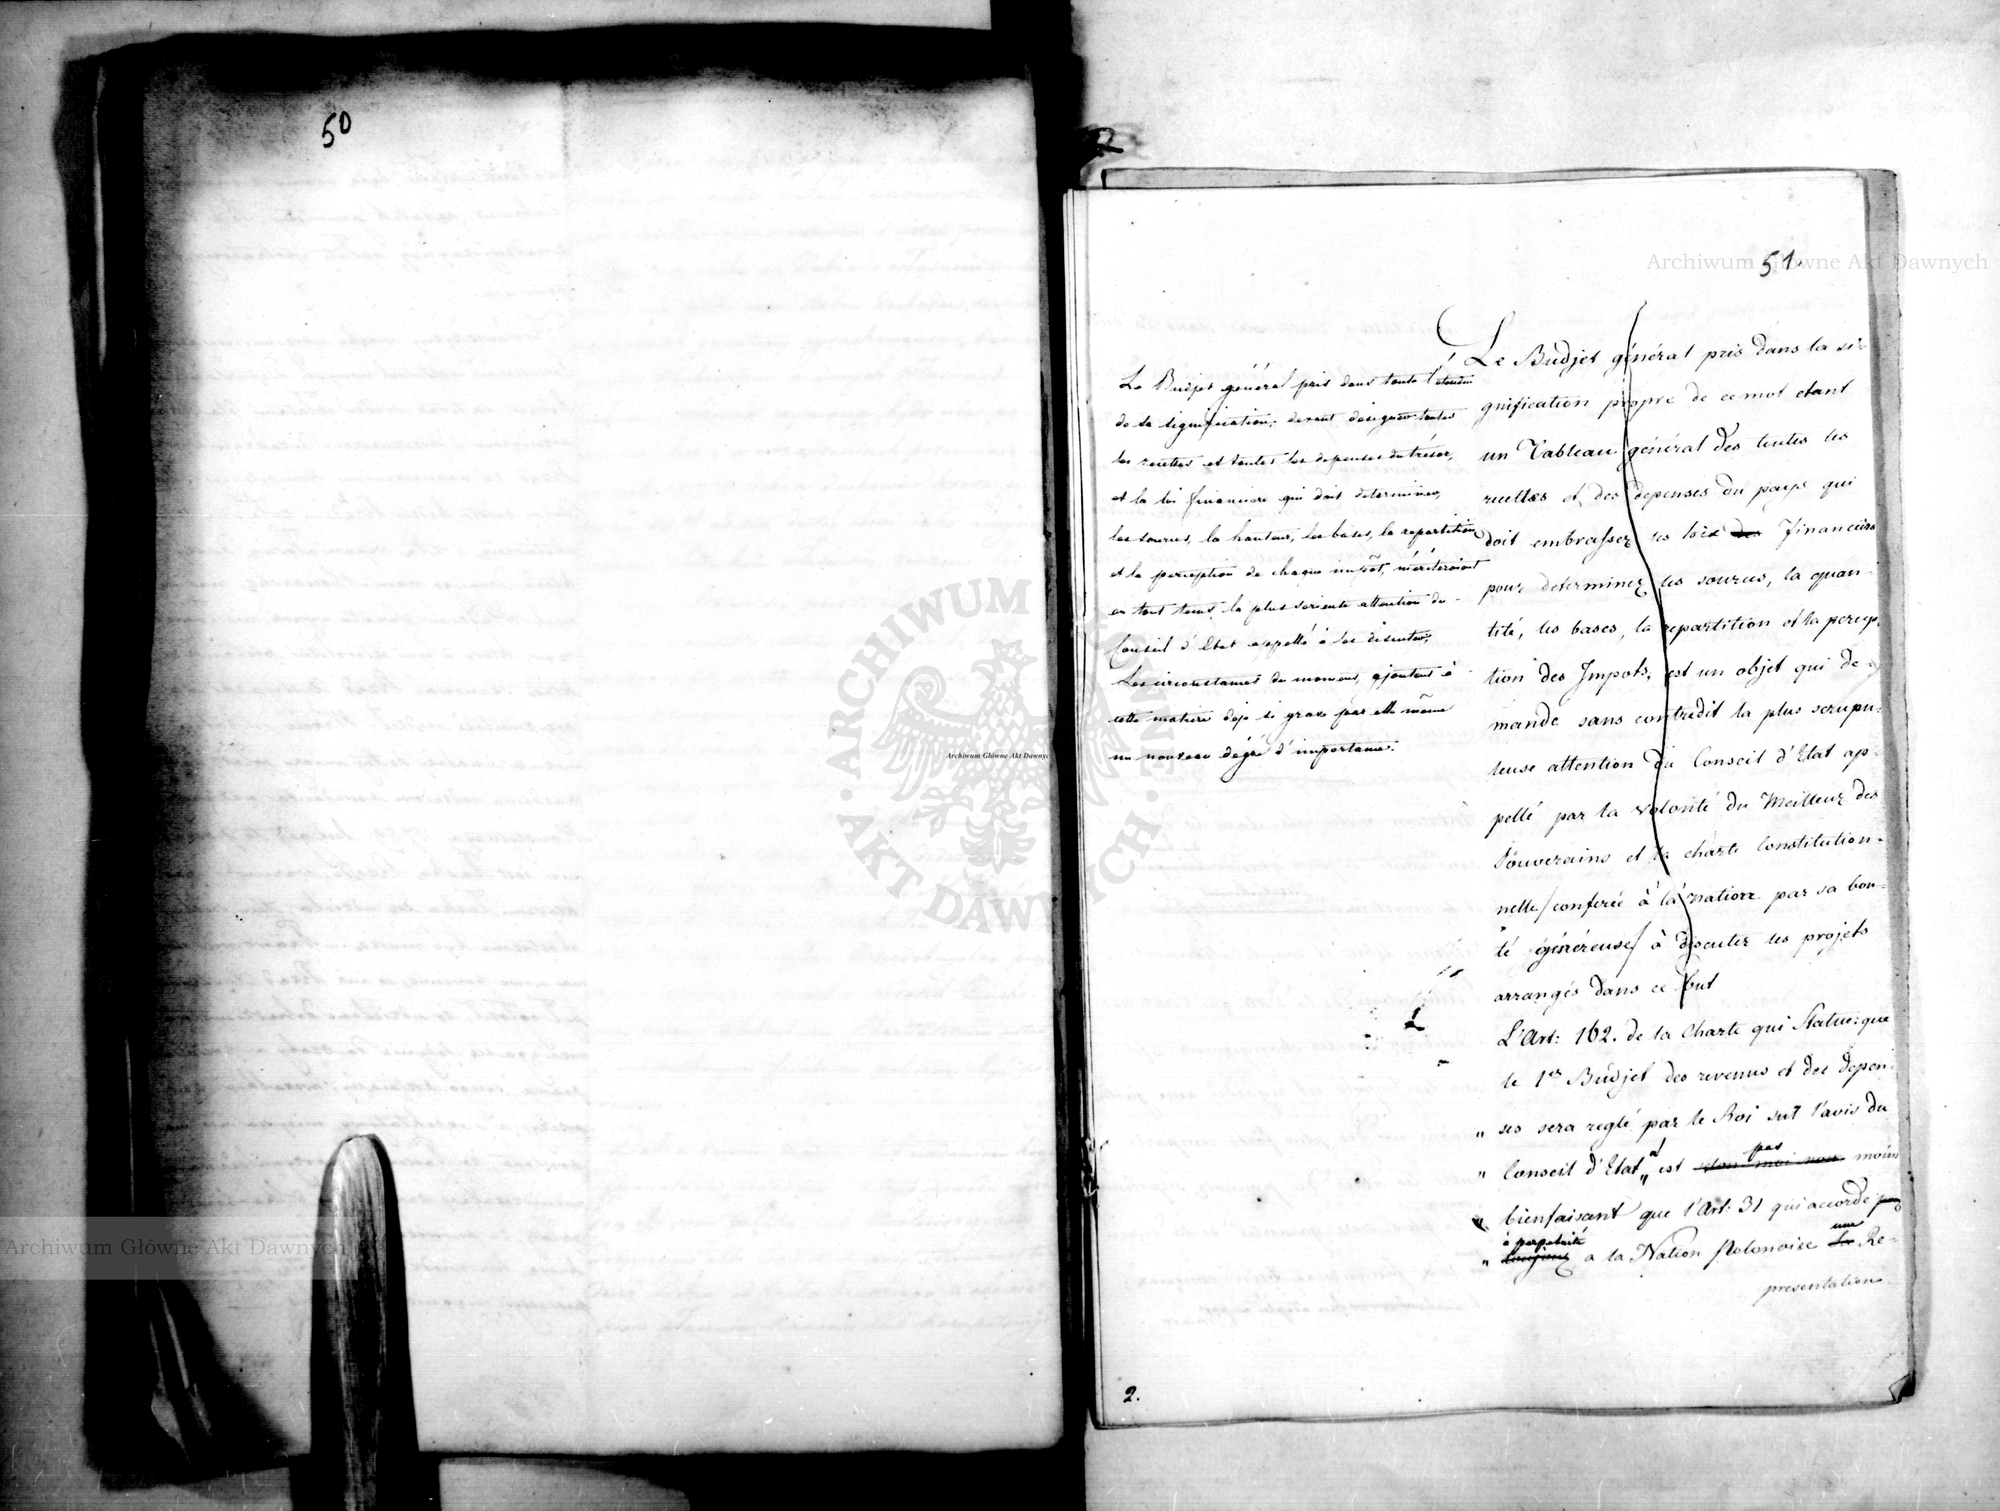 50
51.
Le Budjet général pris dans toute l'étendue
de sa signification, devant designer toutes
les recettes et toutes les depenses du trésor,
et la loi financiere qui doit determiner,
les sources, la hauteur, les bases, la repartition
et la perception de chaque impôt, mériteroient
en tout tems, la plus serieuse attention du
Conseil d'Etat appellé à les discuter,
Les circonstances du moment, ajoutent à
cette matiere deja si grave par elle même
un nouveau dégré d'importance.
Le Budjet général pris dans la si-
gnification propre de ce mot etant
un Tableau général des toutes les
recettes et des depenses du pays qui
doit embrasser les loix des Financière
pour determiner les sources, la quan-
tité, les bases, la repartition et la percep-
tion des Impots, est un objet qui de-
mande sans contredit la plus scrupu-
leuse attention du Conseil d'Etat ap-
pellé par la volonté du Meilleur des
Souverains et la charte Constitution-
nelle/ conferée à la nation par sa bon-
té généreuse/ à discuter les projets
arrangés dans ce but
L'Art: 162. de la Charte qui Statue: que
le 1er Budjet des revenus et des depen-
" ses sera reglé par le Roi sur l'avis du
" Conseil d'Etat" est pas moins
" bienfaisant que l'Art: 31 qui accorde pour
à perpetuité une
" toujours a la Nation Polonoise la Re-
presentation
2.
Archiwum Główne Akt Dawnych
Archiwum Główne Akt Dawnych
Archiwum Główne Akt Dawnych